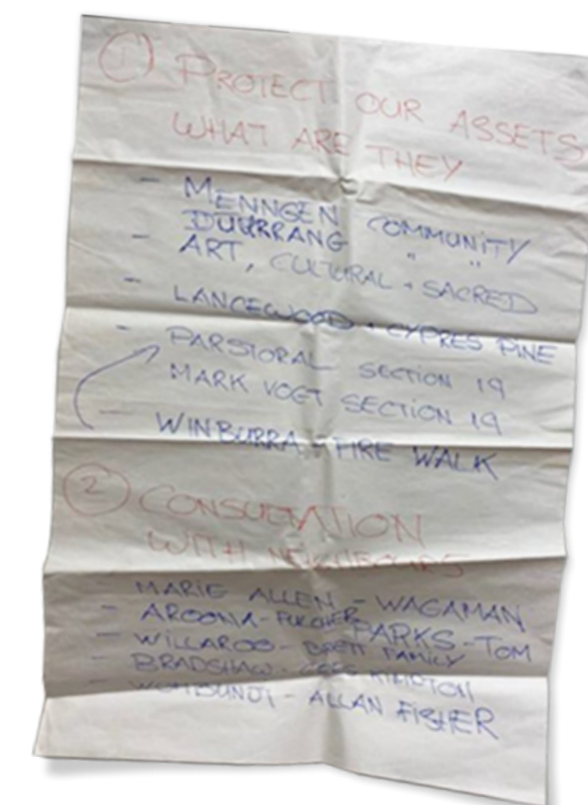 ① PROTECT OUR ASSETS
WHAT ARE THEY
- MENNGEN COMMUNITY
DUURRANG " "
- ART, CULTURAL + SACRED
- LANCEWOOD + CYPRES PINE
- PARSTORAL SECTION 19
MARK VOGT SECTION 19
- WINBURRA - FIRE WALK
② CONSULTATION
WITH NEIGHBOURS
- MARIE ALLEN - WAGAMAN
- AROONA - FULCHER PARKS - TOM
- WILLAROO - BRETT FAMILY
- BRADSHAW -
- WOMBUNJI - ALLAN FISHER